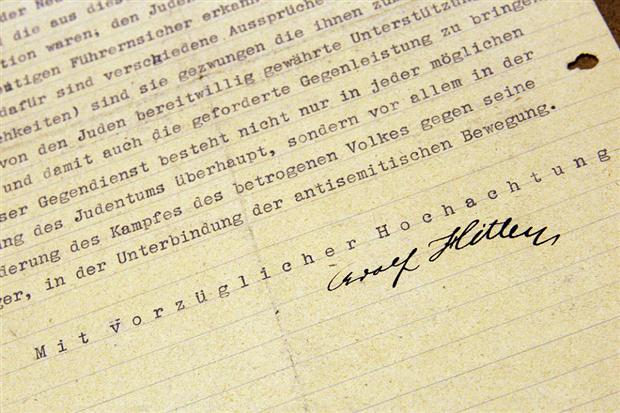 der Neu
die aus dies
tion waren, den Juden
utigen Führernsicher erkann
dafür sind verschiedene Aussprüche
chkeiten) sind sie gezwungen die ihnen zu
von den Juden bereitwillig gewährte Unterstützun
und damit auch die geforderte Gegenleistung zu bringen
ser Gegendienst besteht nicht nur in jeder möglichen
ung des Judentums überhaupt, sondern vor allem in der
derung des Kampfes des betrogenen Volkes gegen seine
ger, in der Unterbindung der antisemitischen Bewegung.
Mit vorzüglicher Hochachtung
Adolf Hitler